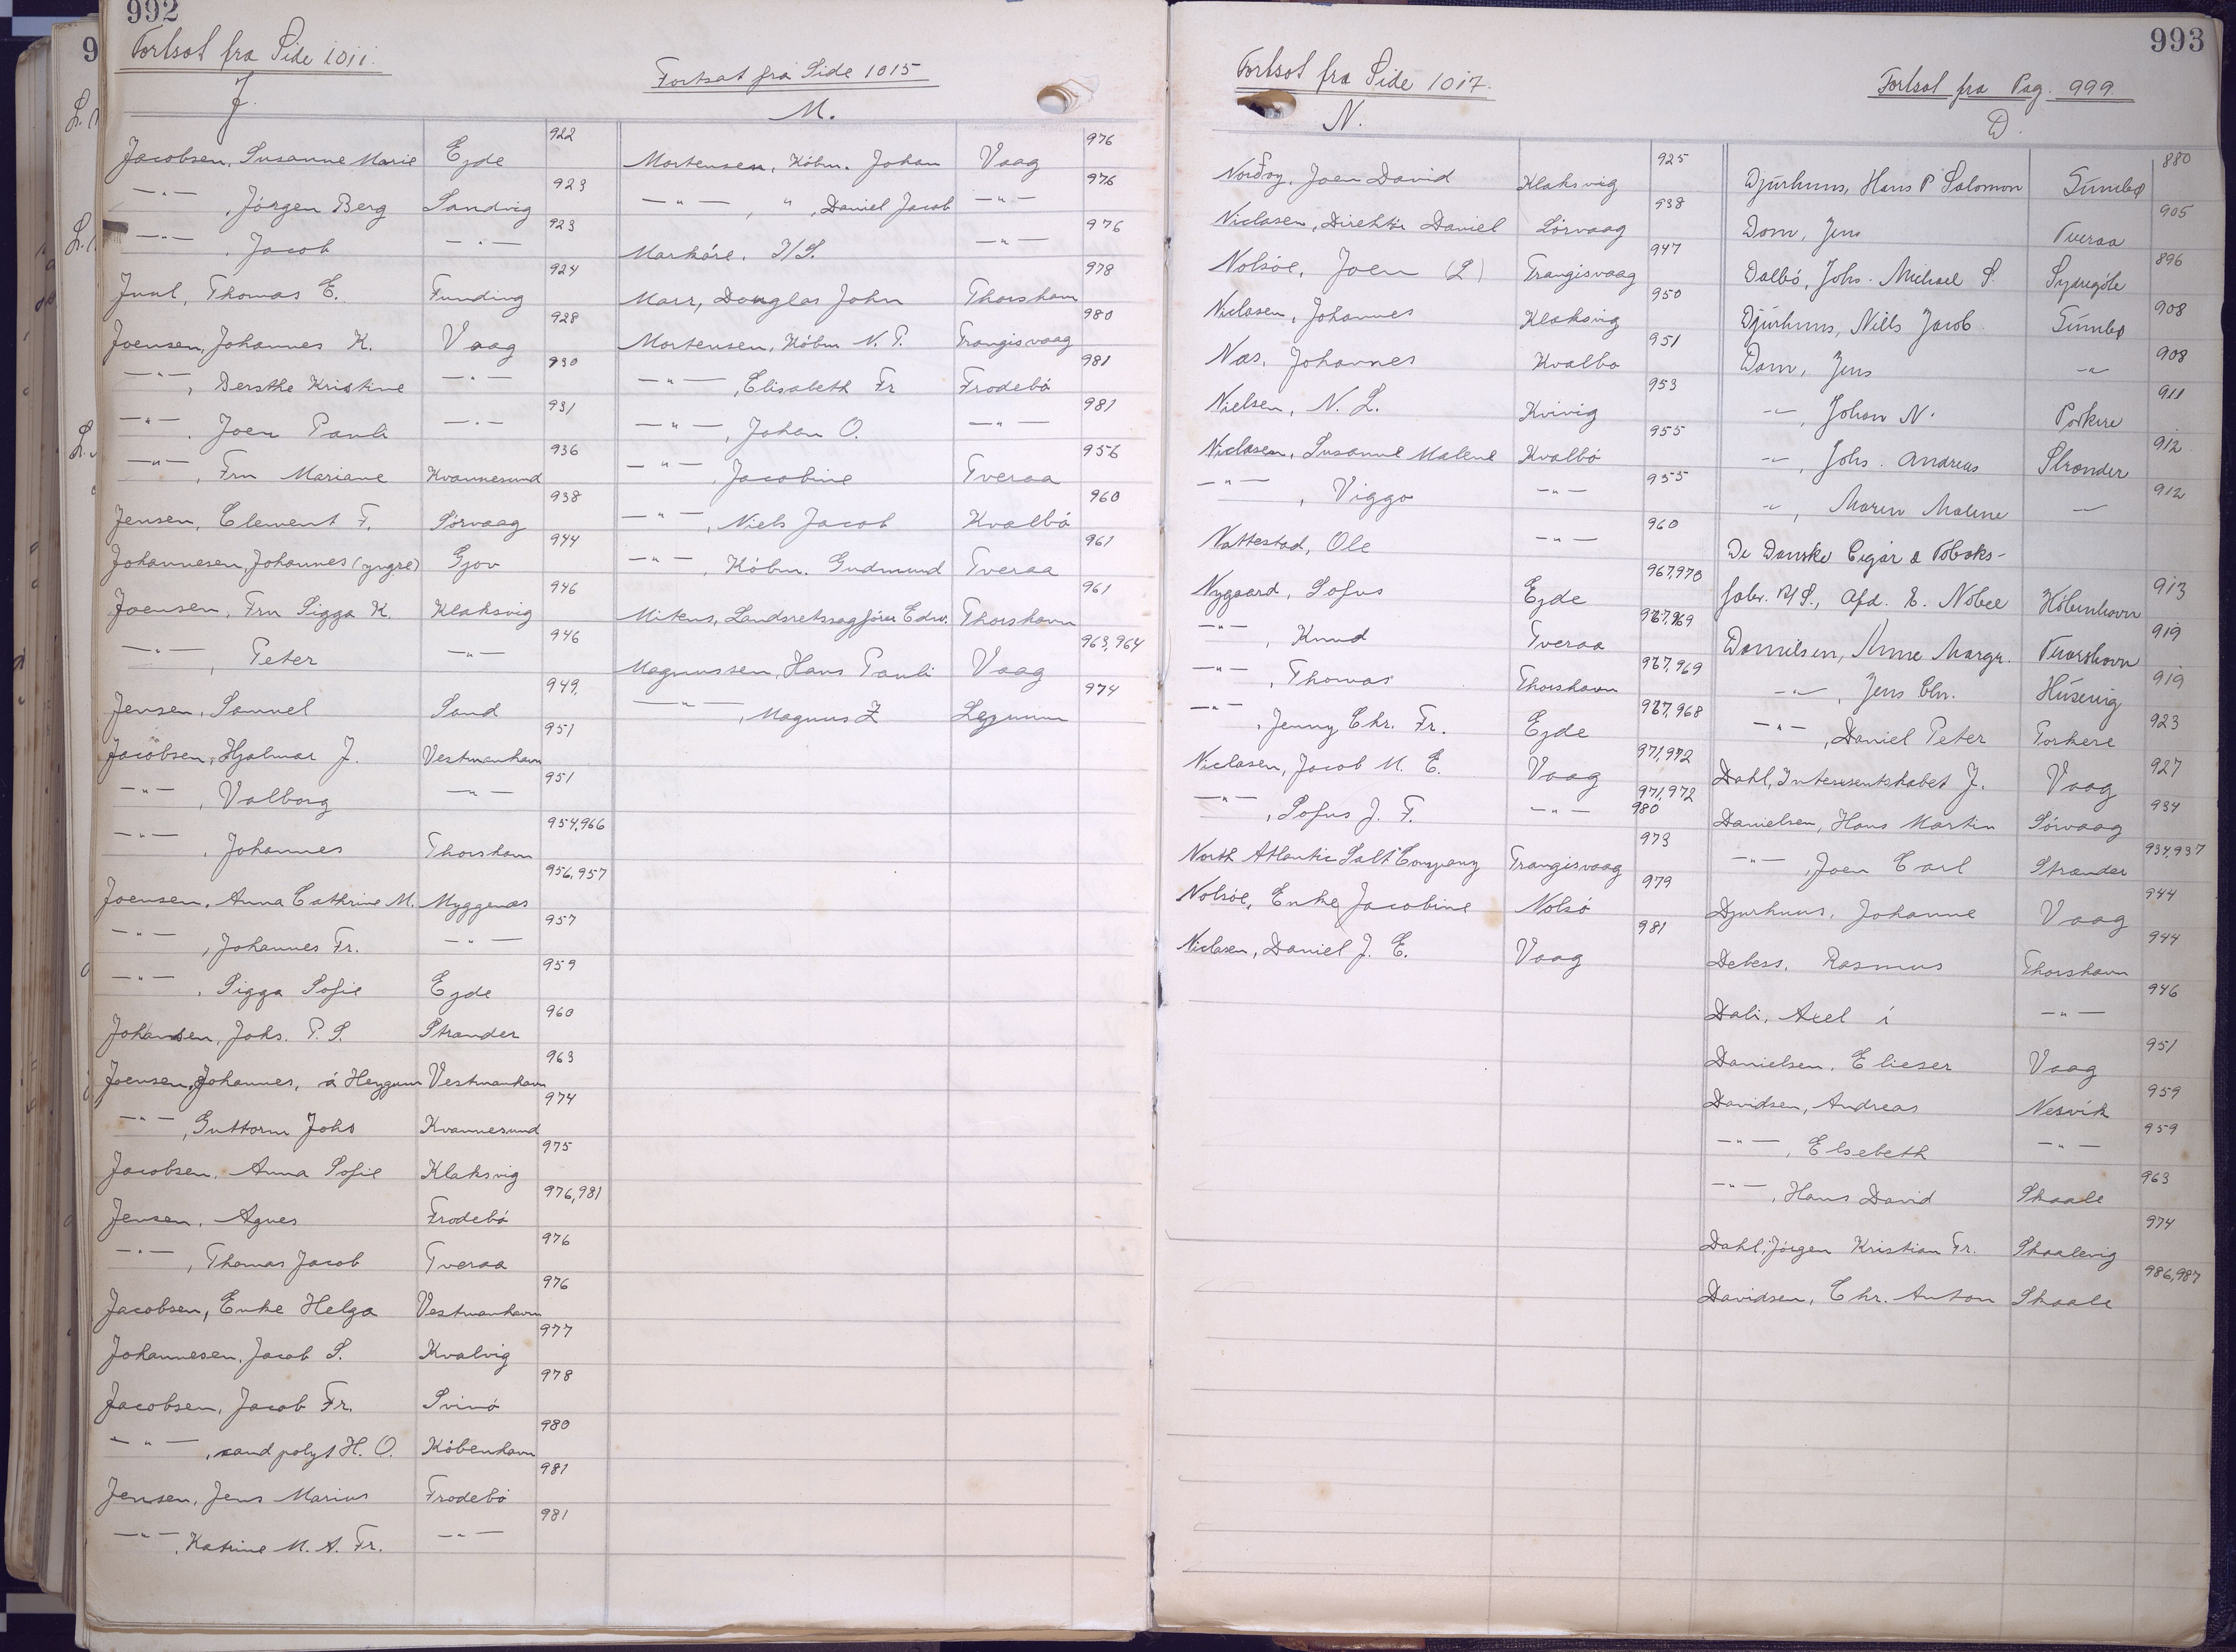 992
Fortsat fra Side 1011.
J.
Jacobsen, Susanne Marie Ejde 922
—"— , Jörgen Berg Sandvig 923
—"— , Jacob —"— 923
Juul, Thomas E. Funding 924
Joensen, Johannes K. Vaag 928
—"— , Dersthe Kristine —"— 930
—"— , Joen Pauli —"— 931
—"— , Fru Mariane Kvannesund 936
Jensen, Clement F. Sörvaag 938
Johannesen, Johannes (yngre) Gjov 944
Joensen, Fru Sigga K. Klaksvig 946
—"— , Peter —"— 946
Jensen, Samuel Sand 949.
Jacobsen, Hjalmar J. Vestmanhavn 951
—"— , Valborg —"— 951
—"— , Johannes Thorshavn 954,966
Joensen, Anna Cathrine M. Myggenæs 956,957
—"— , Johannes Fr. —"— 957
—"— , Sigga Sofie Ejde 959
Johansen, Johs. P. S. Strander 960
Joensen, Johannes, á Heygum Vestmanhavn 963
—"— , Guttorm Johs Kvannesund 974
Jacobsen, Anna Sofie Klaksvig 975
Jensen, Agnes Frodebö 976,981
—"— , Thomas Jacob Tveraa 976
Jacobsen, Enke Helga Vestmanhavn 976
Johannesen, Jacob S. Kvalvig 977
Jacobsen, Jacob Fr. Svinö 978
—"— , cand polyt H. O. Köbenhavn 980
Jensen, Jens Marius Frodebö 981
—"— , Katrine M. A. Fr. —"— 981
Fortsat fra Side 1015
M.
Mortensen, Köbm. Johan Vaag 976
—"— , " , Daniel Jacob —"— 976
Markáre, I/S. —"— 976
Marr, Douglas John Thorshavn 978
Mortensen, Köbm N. P. Trangisvaag 980
—"— , Elisabeth Fr Frodebö 981
—"— , Johan O. —"— 981
—"— , Jacobine Tveraa 956
—"— , Niels Jacob Kvalbö 960
—"— , Köbm. Gudmund Tveraa 961
Mitens, Landsretssagförer Edw. Thorshavn 961
Magnussen, Hans Pauli Vaag 963,964
—"— , Magnus Z Legnum 974
993
Fortsat fra Side 1017.
N.
Nordoy, Joen David Klaksvig 925
Niclasen, Direktör Daniel Sörvaag 938
Nolsöe, Joen (L) Trangisvaag 947
Niclasen, Johannes Klaksvig 950
Næs, Johannes Kvalbö 951
Nielsen, N. L. Kvivig 953
Niclasen, Susanne Malene Kvalbö 955
—"— , Viggo —"— 955
Nattestad, Ole —"— 960
Nygaard, Sofus Ejde 967,970
—"— , Knud Tveraa 967,969
—"— , Thomas Thorshavn 967,969
—"— , Jenny Chr. Fr. Ejde 967,968
Niclasen, Jacob M. E. Vaag 971,972
—"— , Sofus J. F. —"— 971,972 980
North Atlantic Salt Company Trangisvaag 973
Nolsöe, Enke Jacobine Nolsö 979
Niclasen, Daniel J. E. Vaag 981
Fortsat fra Pag. 999
D.
Djurhuus, Hans P Salomon Sumbø 880
Dam, Jens Tveraa 905
Dalbö, Johs. Michael S. Sydregöte 896
Djurhuus, Niels Jacob Sumbø 908
Dam, Jens —"— 908
—"— , Johan N. Porkere 911
—"— , Johs. Andreas Strander 912
—"— , Maren Malene —"— 912
De Danske Cigar & Tobaks-
fabr. A/S., Afd. E. Nobel Köbenhavn 913
Danielsen, Anne Margr. Thorshavn 919
—"— , Jens Chr. Húsevig 919
—"— , Daniel Peter Porkere 923
Dahl, Interessentskabet J. Vaag 927
Danielsen, Hans Martin Sörvaag 934
—"— , Joen Carl Strander 934,937
Djurhuus, Johanne Vaag 944
Debess, Rasmus Thorshavn 944
Dali, Axel í —"— 946
Danielsen, Elieser Vaag 951
Davidsen, Andreas Nesvík 959
—"— , Elsebeth —"— 959
—"— , Hans David Skaale 963
Dahl, Jörgen Kristian Fr. Skaalevig 974
Davidsen, Chr. Anton Skaale 986,987